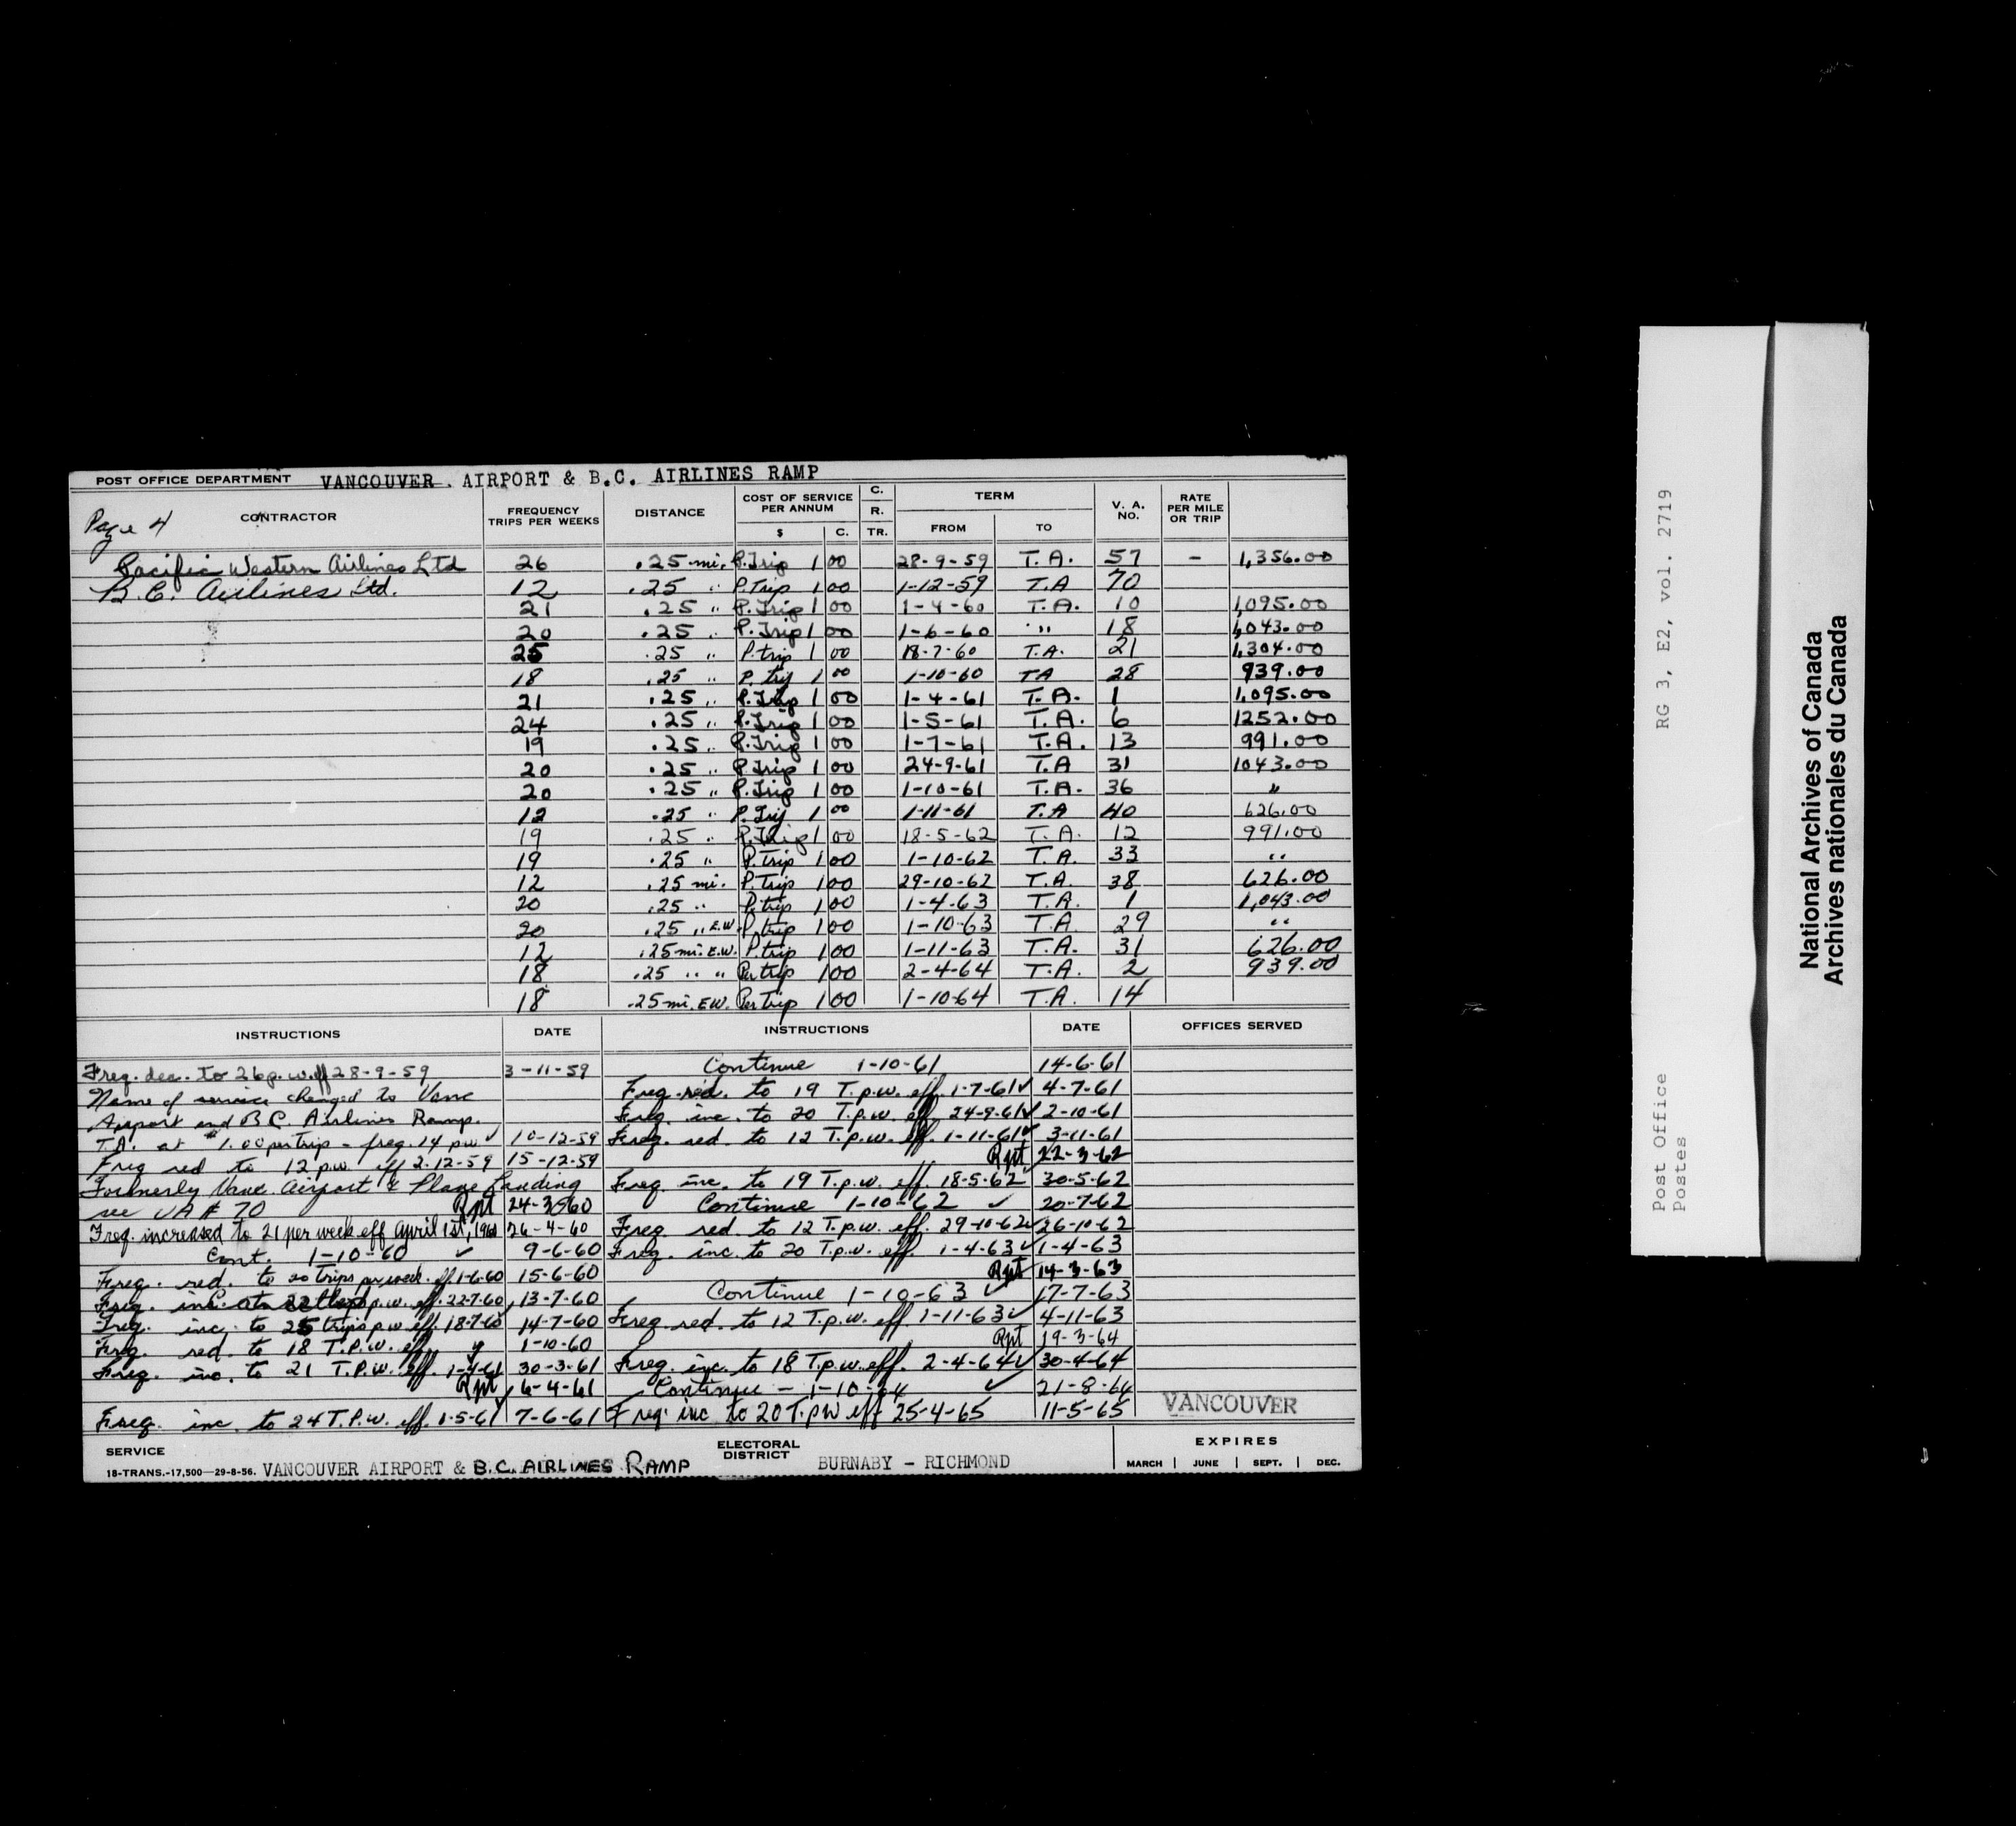 POST OFFICE DEPARTMENT VANCOUVER AIRPORT & B.C. AIRLINES RAMP
Page 4 CONTRACTOR FREQUENCY TRIPS PER WEEKS DISTANCE COST OF SERVICE PER ANNUM $ C. C. R. TR. TERM FROM TO V. A. NO. RATE PER MILE OR TRIP
Pacific Western Airlines Ltd 26 .25 mi. P.Trip 1 00 28-9-59 T.A. 57 - 1,356.00
B.C. Airlines Ltd. 12 .25 " P.Trip 1 00 1-12-59 T.A 70
21 .25 " P.Trip 1 00 1-4-60 T.A. 10 1,095.00
20 .25 " P.Trip 1 00 1-6-60 " 18 1,043.00
25 .25 " P.trip 1 00 18-7-60 T.A. 21 1,304.00
18 .25 " P.trip 1 00 1-10-60 TA 28 939.00
21 .25 " P.Trip 1 00 1-4-61 T.A. 1 1,095.00
24 .25 " P.Trip 1 00 1-5-61 T.A. 6 1252.00
19 .25 " P.Trip 1 00 1-7-61 T.A. 13 991.00
20 .25 " P.Trip 1 00 24-9-61 T.A 31 1043.00
20 .25 " P.Trip 1 00 1-10-61 T.A. 36 "
12 .25 " P.Trip 1 00 1-11-61 T.A 40 626.00
19 .25 " P.Trip 1 00 18-5-62 T.A. 12 991.00
19 .25 " P.Trip 1 00 1-10-62 T.A. 33 "
12 .25 mi. P.Trip 1 00 29-10-62 T.A. 38 626.00
20 .25 " P.trip 1 00 1-4-63 T.A. 1 1,043.00
20 .25 " E.W. P.trip 1 00 1-10-63 T.A. 29 "
12 .25 mi. E.W. P.trip 1 00 1-11-63 T.A. 31 626.00
18 .25 " " Per trip 1 00 2-4-64 T.A. 2 939.00
18 .25 mi. EW. Per Trip 1 00 1-10-64 T.A. 14
INSTRUCTIONS DATE INSTRUCTIONS DATE OFFICES SERVED
Freq. dec. to 26 p.w. eff 28-9-59 3-11-59
Name of service changed to Vanc
Airport and B.C. Airlines Ramp.
T.A. at $1.00 per trip - freq. 14 pw ✓ 10-12-59
Freq red to 12 p.w. eff 2-12-59 15-12-59
Formerly Vanc. Airport & Plane Landing
see VA # 70 Rpt 24-3-60
Freq. increased to 21 per week eff April 1st, 1960 26-4-60
Cont. 1-10-60 ✓ 9-6-60
Freq. red. to 20 Trips per week eff. 1-6-60 15-6-60
Freq. inc. p.w. eff. 22-7-60 13-7-60
Freq. inc. to 25 trips p.w. eff. 18-7-60 14-7-60
Freq. red. to 18 T.P.W. eff. 1-10-60
Freq. inc. to 21 T.P.W. eff. 1-4-61 30-3-61
Rpt 6-4-61
Freq. inc. to 24 T.P.W. eff. 1-5-61 7-6-61
Continue 1-10-61 14-6-61
Freq. red. to 19 T.p.w. eff. 1-7-61 ✓ 4-7-61
Freq. inc. to 20 T.p.w. eff. 24-9-61 ✓ 2-10-61
Freq. red. to 12 T.p.w. eff. 1-11-61 ✓ 3-11-61
Rpt 22-3-62
Freq. inc. to 19 T.p.w. eff. 18-5-62 30-5-62
Continue 1-10-62 ✓ 20-7-62
Freq. red to 12 T.p.w. eff. 29-10-62 ✓ 26-10-62
Freq. inc. to 20 T.p.w. eff. 1-4-63 ✓ 1-4-63
Rpt 14-3-63
Continue 1-10-63 ✓ 17-7-63
Freq. red. to 12 T.p.w. eff 1-11-63 ✓ 4-11-63
Rpt 19-3-64
Freq. inc. to 18 T.p.w. eff. 2-4-64 ✓ 30-4-64
Continue - 1-10-64 ✓ 21-8-64
Freq. inc to 20 T.p.w eff 25-4-65 11-5-65
VANCOUVER
SERVICE ELECTORAL DISTRICT EXPIRES
18-TRANS.-17,500—29-8-56. VANCOUVER AIRPORT & B.C. AIRLINES RAMP BURNABY - RICHMOND MARCH | JUNE | SEPT. | DEC.
Post Office RG 3, E2, vol. 2719
Postes
National Archives of Canada
Archives nationales du Canada